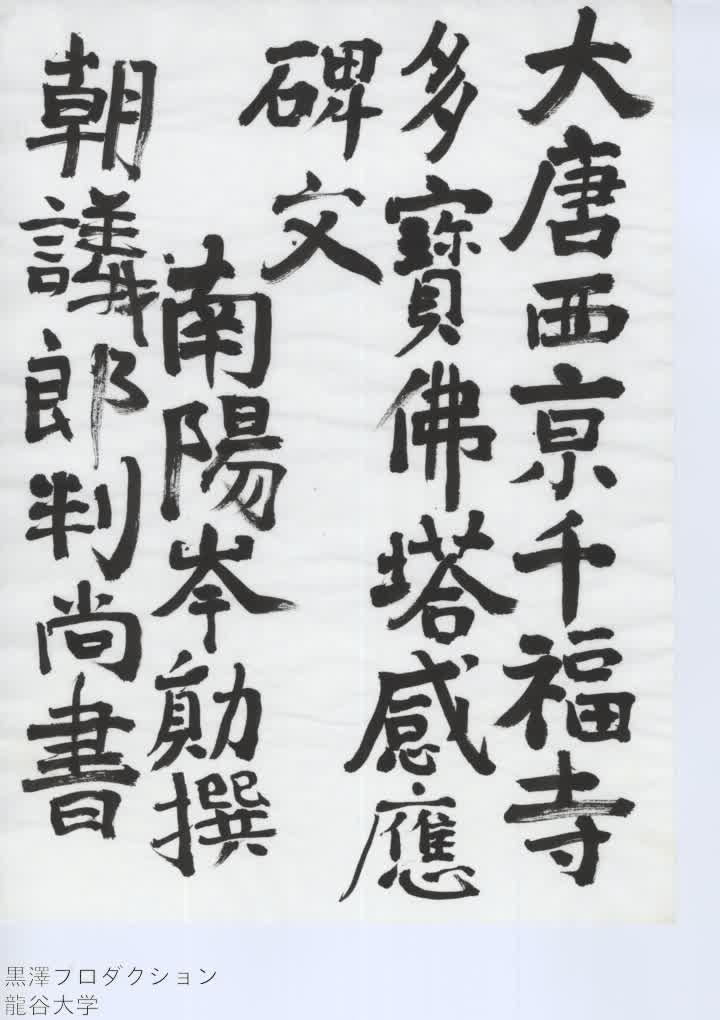 大唐西京千福寺
多寶佛塔感應
碑文
南陽岑勛撰
朝議郎判尚書
黒澤プロダクション
龍谷大学